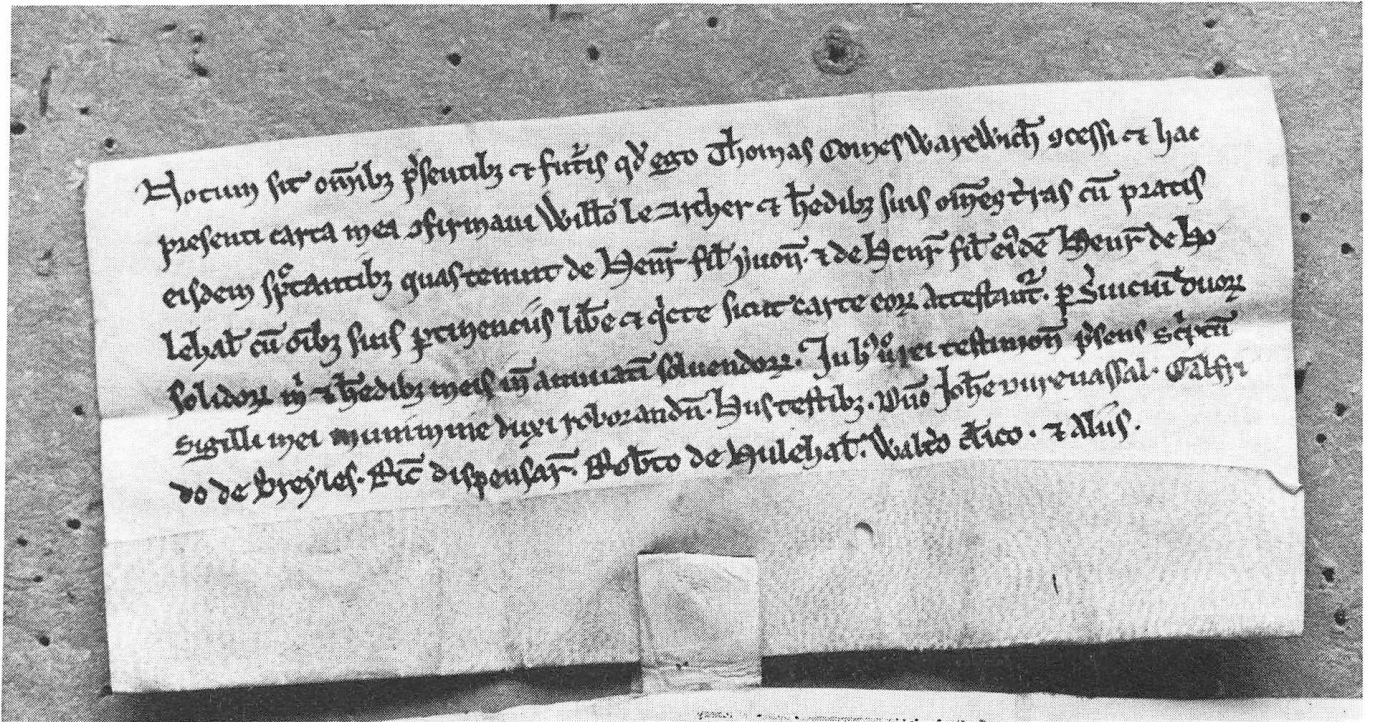 Notum sit om̅ib; p̓sentib; ⁊ fut᷑is qd̓ ego Thomas Comes Warewich̅ ꝯcessi ⁊ hac
presenti carta mea ꝯfirmaui Will̅o le Archer ⁊ h̅edib; suis om̅es t̓ras cu̅ pratis
eisdem sp̓ctantib; quas tenuit de Henr̅ fil̅ yuon̅ ⁊ de Henr̅ fil̅ ei᷒dē Henr̅ de Ho
lehal̅ cu̅ oi̅b; suis ꝑtinenciis lib̅e ⁊ q̓ete sicut carte eoꝝ Attestant᷑ . ꝑ S̓uiciu̅ duoꝝ
solidoꝝ m̓ ⁊ h̅edib; meis in̅ annuati̅ soluendoꝝ . In hui᷒ rei testimon̅ p̓sens sc̓ptu̅
sigilli mei munimine duxi roborandu̅ . Hiis testib; . Dn̅o Joh̅e Galfri
do de Breyles . Ric̅ dispensar̅ . Rob̅to de Hulehal̅ . Walt̓o cl̅ico . ⁊ Aliis .